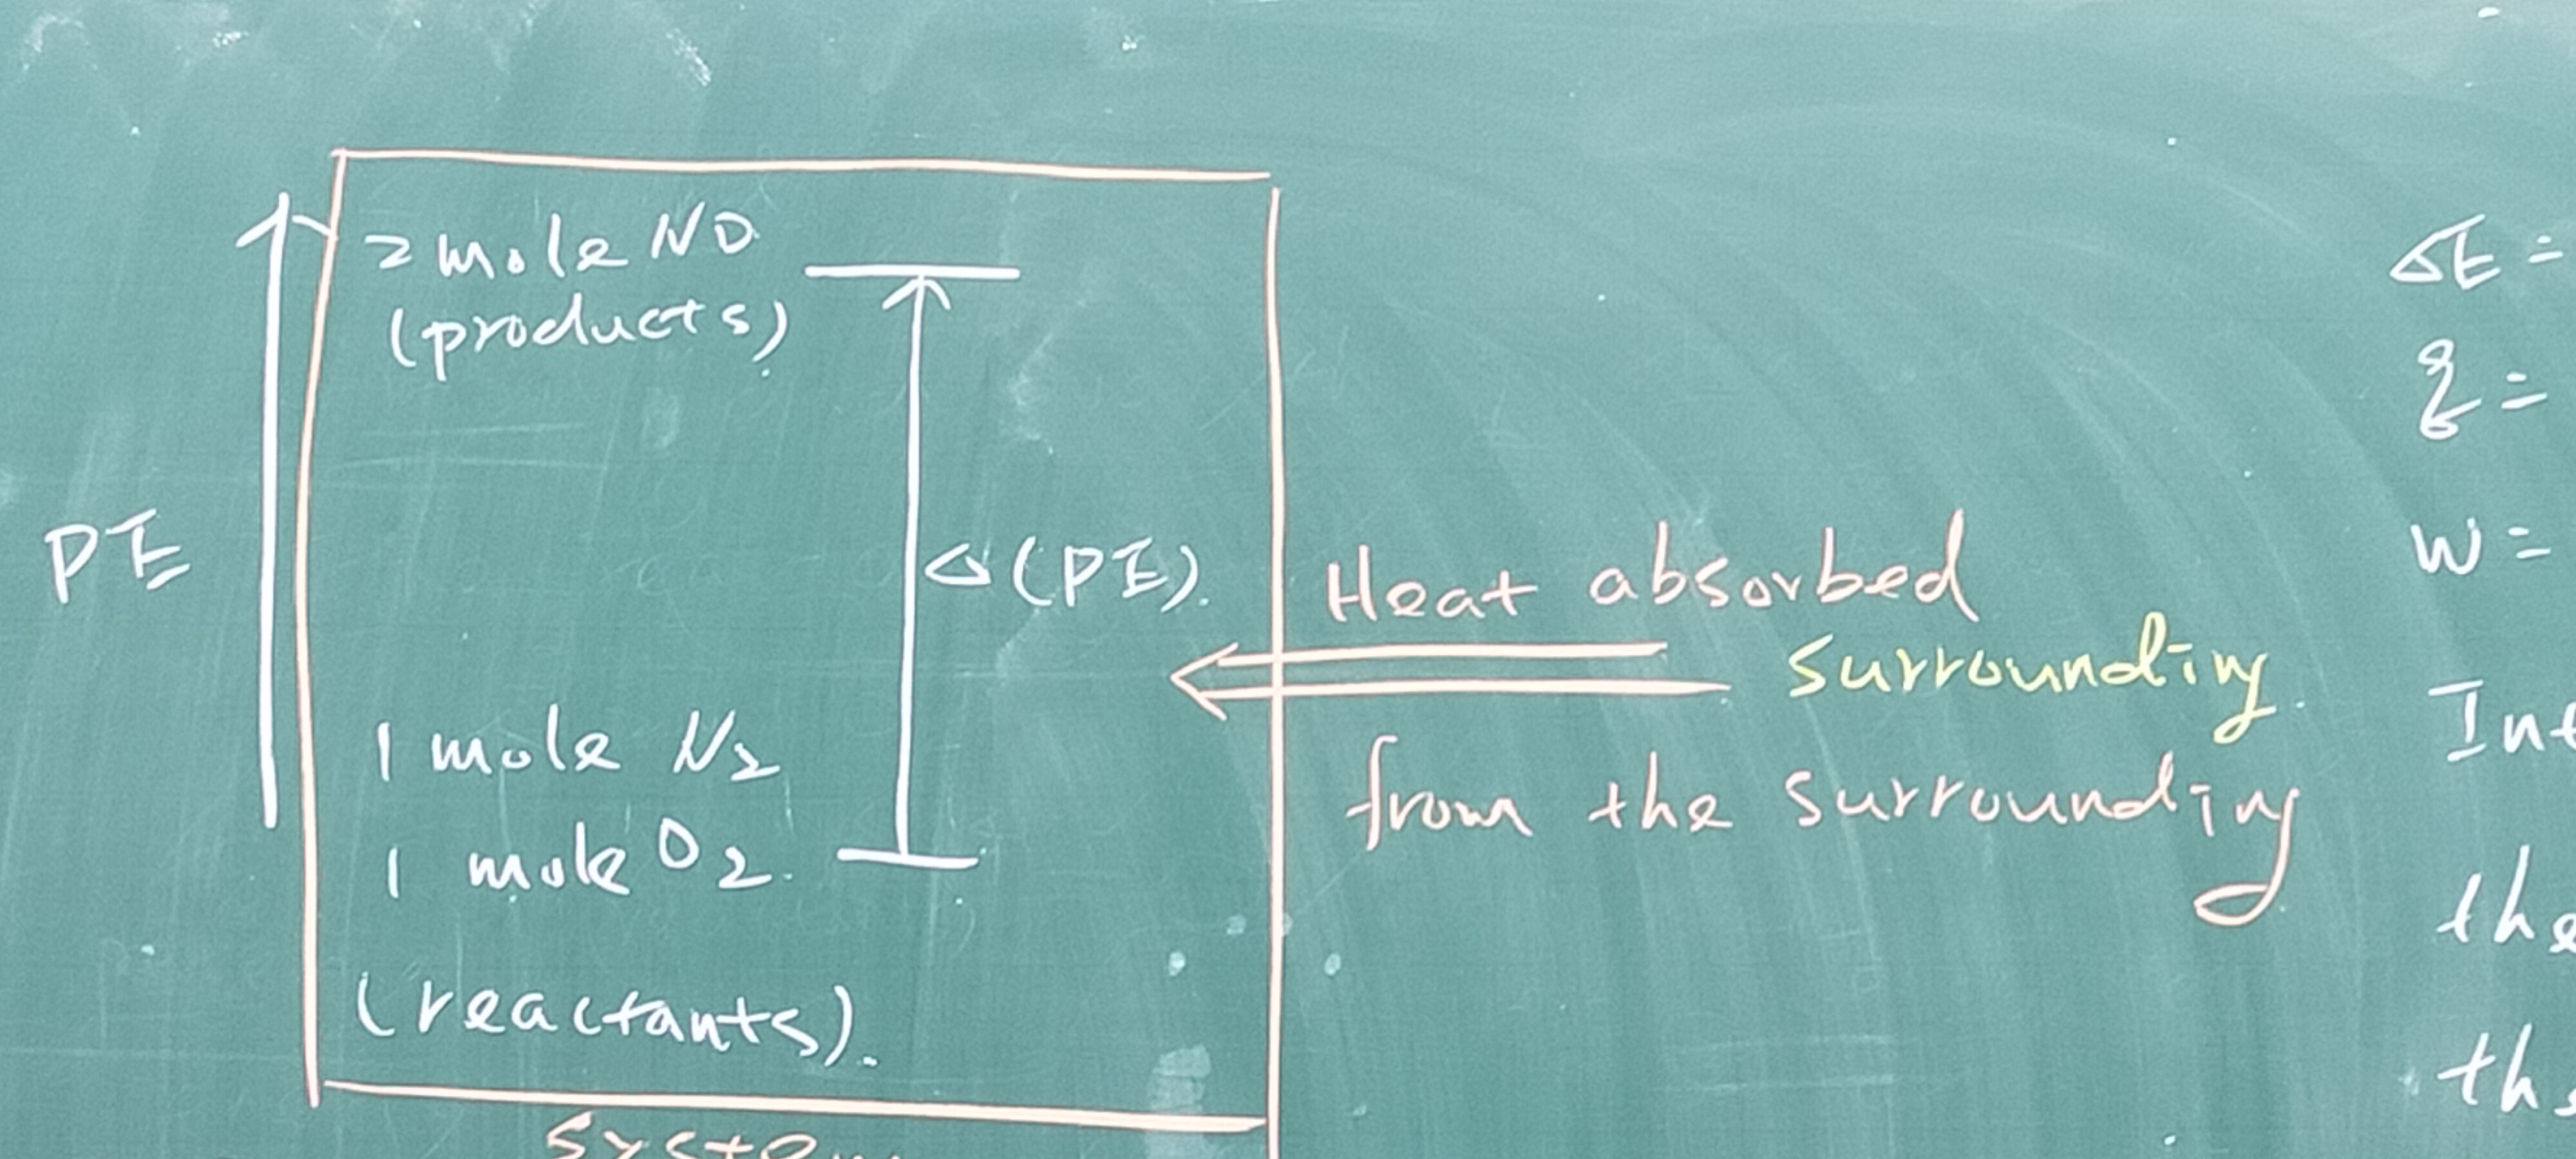 2 mole NO
(products)
PE
Δ(PE).
1 mole N2
1 mole O2.
(reactants).
Heat absorbed
surrounding
from the surrounding
ΔE =
q =
w =
the